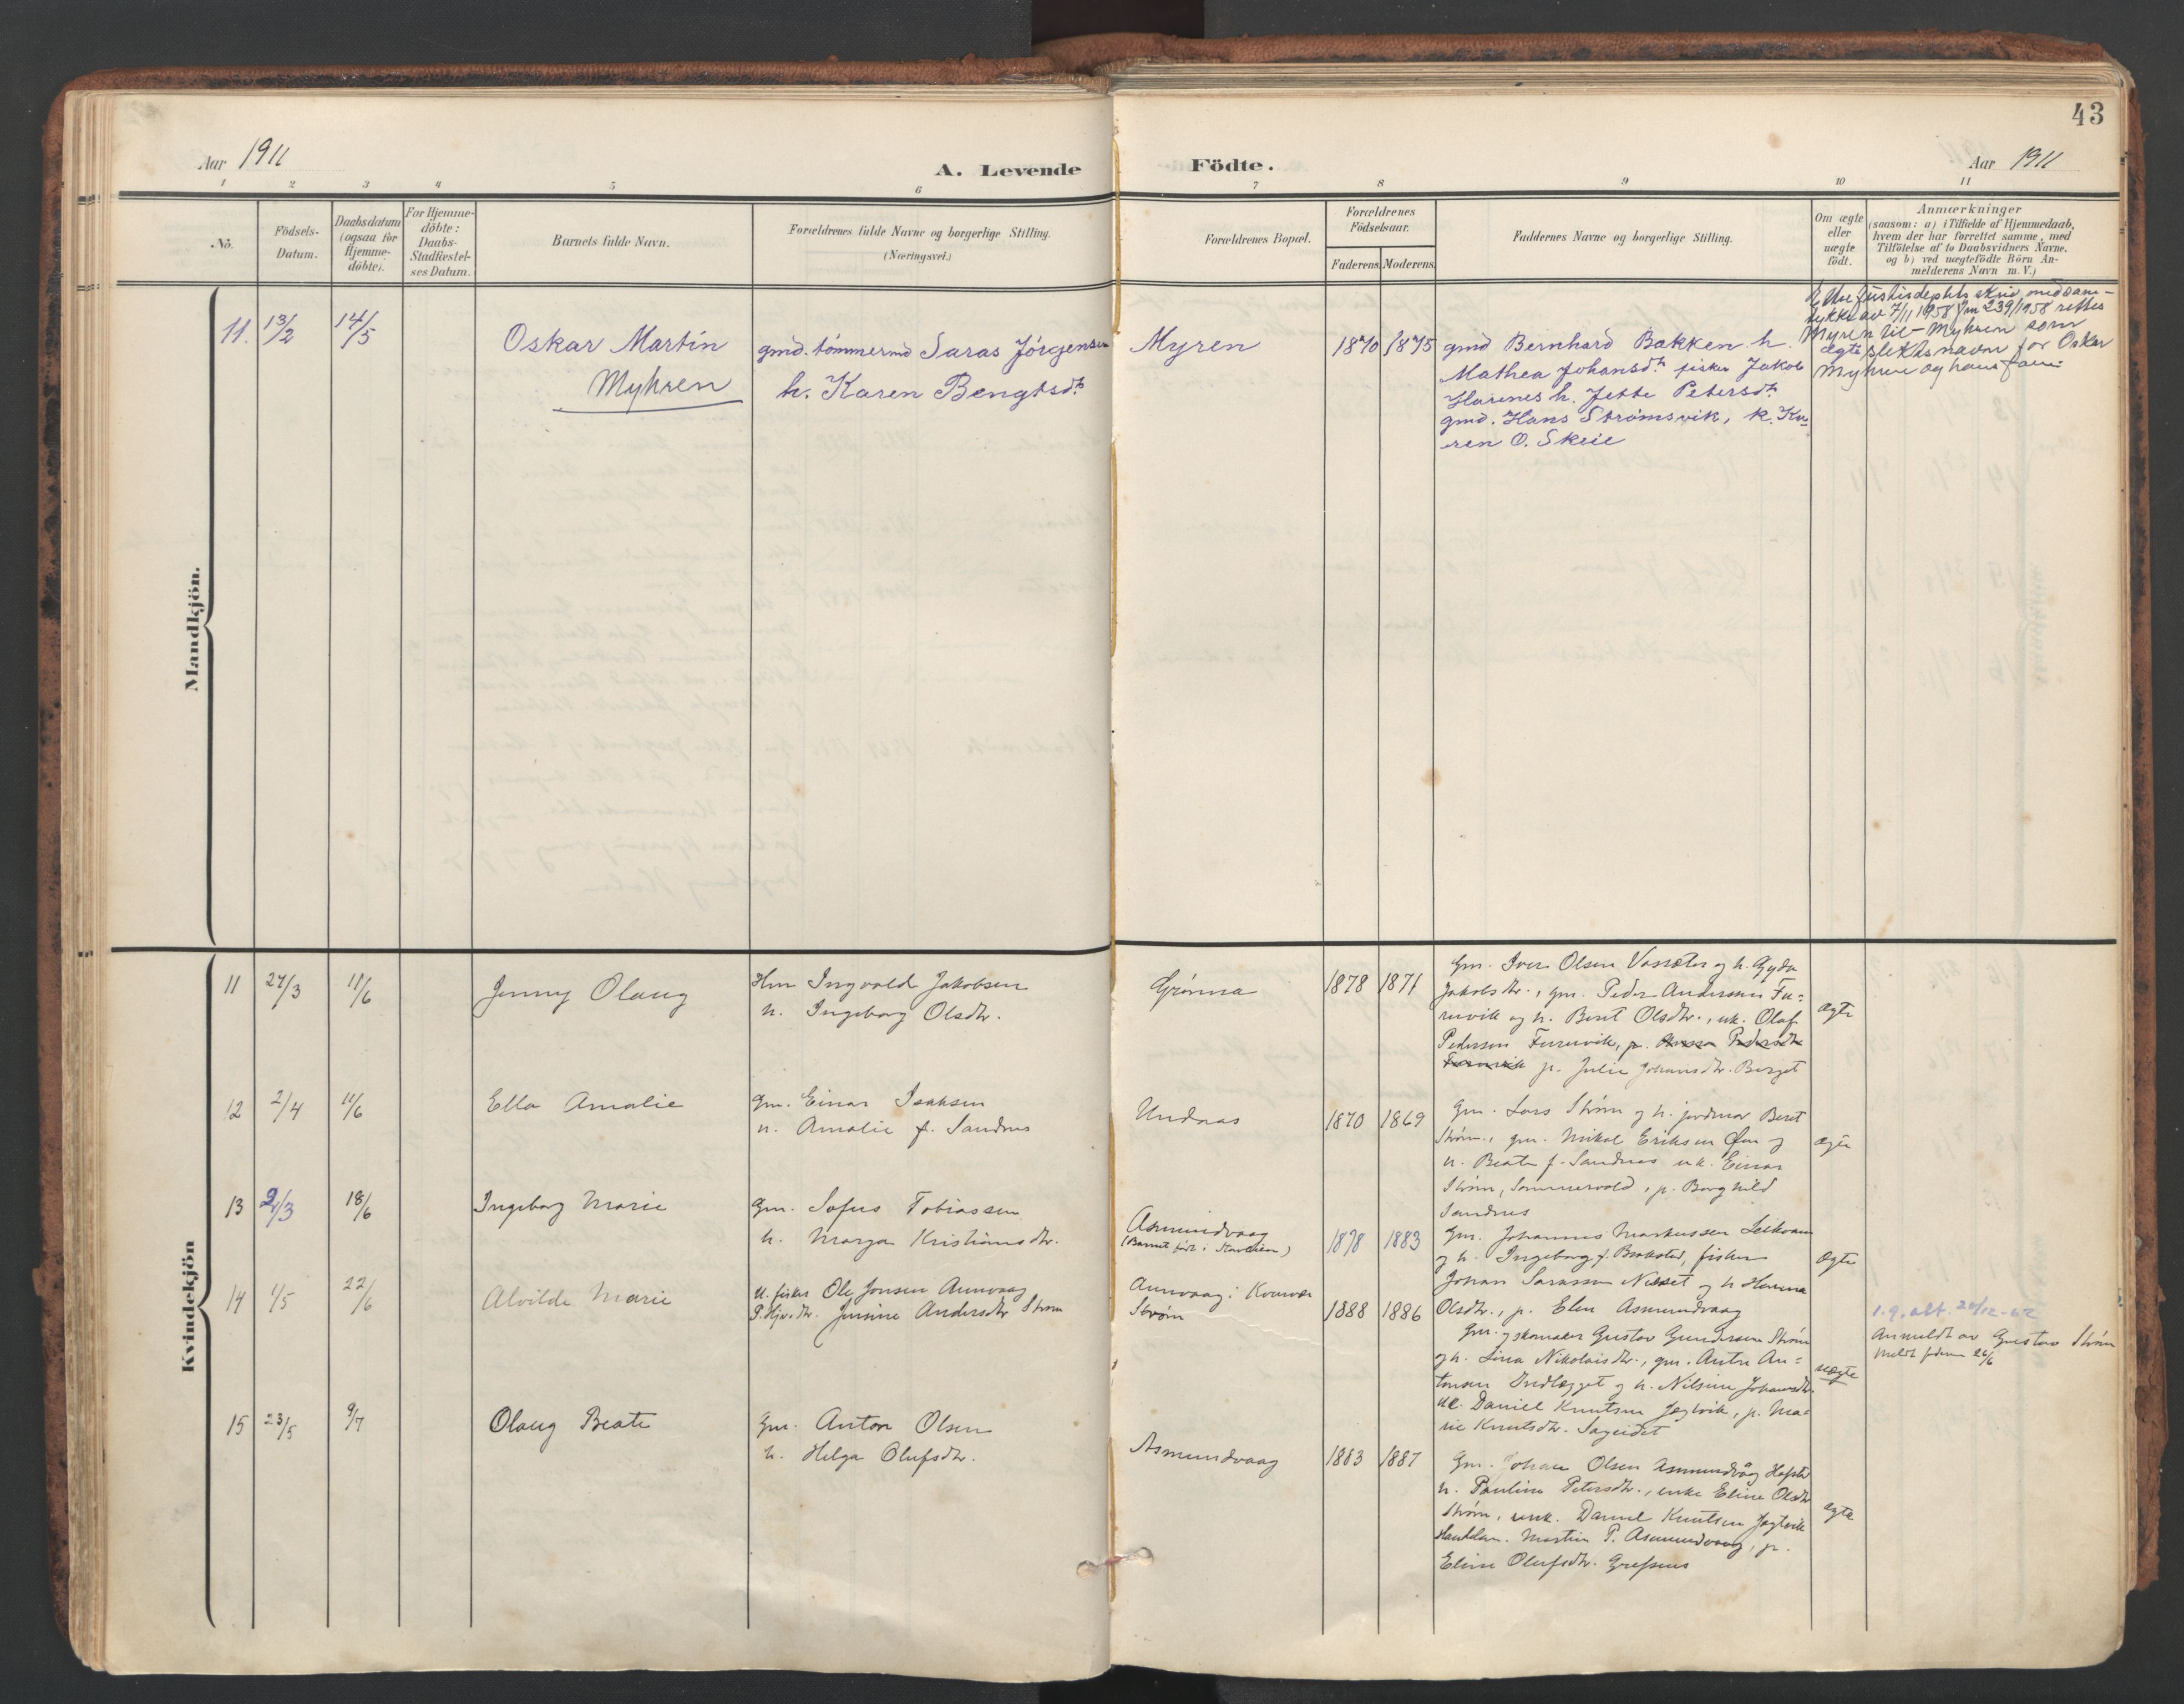 43
Aar 1911
A. Levende
Födte.
Aar 1911
1 2 3 4 5 6 7 8 9 10 11
No.
Födsels-
Datum.
Daabsdatum
(ogsaa for
Hjemme-
döbte).
For Hjemme-
döbte:
Daabs-
Stadfæstel-
ses Datum.
Barnets fulde Navn.
Forældrenes fulde Navne og borgerlige Stilling.
(Næringsvei.)
Forældrenes Bopæl.
Forældrenes
Födselsaar.
Faderens Moderens
Faddernes Navne og borgerlige Stilling.
Om ægte
eller
uægte
födt.
Anmærkninger
(saasom: a) i Tilfælde af Hjemmedaab,
hvem der har forrettet samme, med
Tilföielse af to Daabsvidners Navne.
og b) ved uægtefödte Börn An-
melderens Navn m. V.)
Mandkjön.
11. 13/2 14/5
Oskar Martin
Myhren
gmd. tömmermd Saras Jörgensen
h. Karen Bengtsdtr
Myren
1870 1875
gmd Bernhard Bakken h.
Mathea Johansdtr fisker Jakob
h. Jette Petersdtr
gmd. Hans Strömsvik, k. Ka-
ren O. Skeie
ægte
Etter Justisdeptets skriv med sam-
tykke av 7/11 1958 Jnr 239/1958 rettes
Myren til - Myhren som
slektsnavn for Oskar
Myhren og hans fam.
Kvindekjön
11 27/3 11/6
Jenny Olaug
Hm Ingvald Jakobsen
h. Ingeborg Olsdtr.
Grønna
1878 1871
Gm. Iver Olsen Vasseter og h. Gyda
Jakobsdtr., gm. Peder Andersen Fu-
ruvik og h. Beret Olsdtr., uk. Olaf
Pedersen Furuvik, p.
p. Julie Johansdtr. Berget
ægte
12 2/4 11/6
Ella Amalie
gm. Einar Isaksen
h. Amalie f. Sandnes
Undaas
1870 1869
Gm. Lars Strøm og h. jordmor Beret
Strøm, gm. Mikal Eriksen Øen og
h. Beate f. Sandnes uk. Einar
Strøm, Sommervold, p. Borghild
Sandnes
ægte
13 2/3 18/6
Ingeborg Marie
gm. Sofus Tobiassen
h. Marja Kristiansdtr.
Asmundvaag
(Barnet født i )
1878 1883
Gm. Johannes Markussen
og h. Ingeborg f. Brakstad, fisker
Johan Sarassen og h Hanna
Olsdtr., p. Elen Asmundvaag
ægte
14 1/5 22/6
Alvilde Marie
u. fisker Ole Jonsen Aunvaag
P. Hjv. dtr. Jensine Andersdtr Strøm
Aunvaag i Kvenvær
Strøm
1888 1886
Gm. og skomaker Gustav Gundersen Strøm
og h. Lina Nikolaisdtr., gm. Antre An-
tonsen Indlægget og h. Nilsine Johansdtr
uk. Daniel Knutsen Jægtvik, p. Ma-
rie Knutsdtr. Sageidet
uægte
1.9.alt. 20/12-62
Anmeldt av Gustav Strøm
Meldt fideren 26/6
15 23/5 9/7
Olaug Beate
gm. Anton Olsen
h. Helga Olufsdtr.
Asmundvaag
1883 1887
Gm. Johan Olsen Asmundvåg
h. Pauline Petersdtr., enke Eline Olsdtr
Strøm, unk. Daniel Knutsen Jægtvik
Martin P. Asmundvaag, p.
Eline Olufsdtr. Grefsnes
ægte